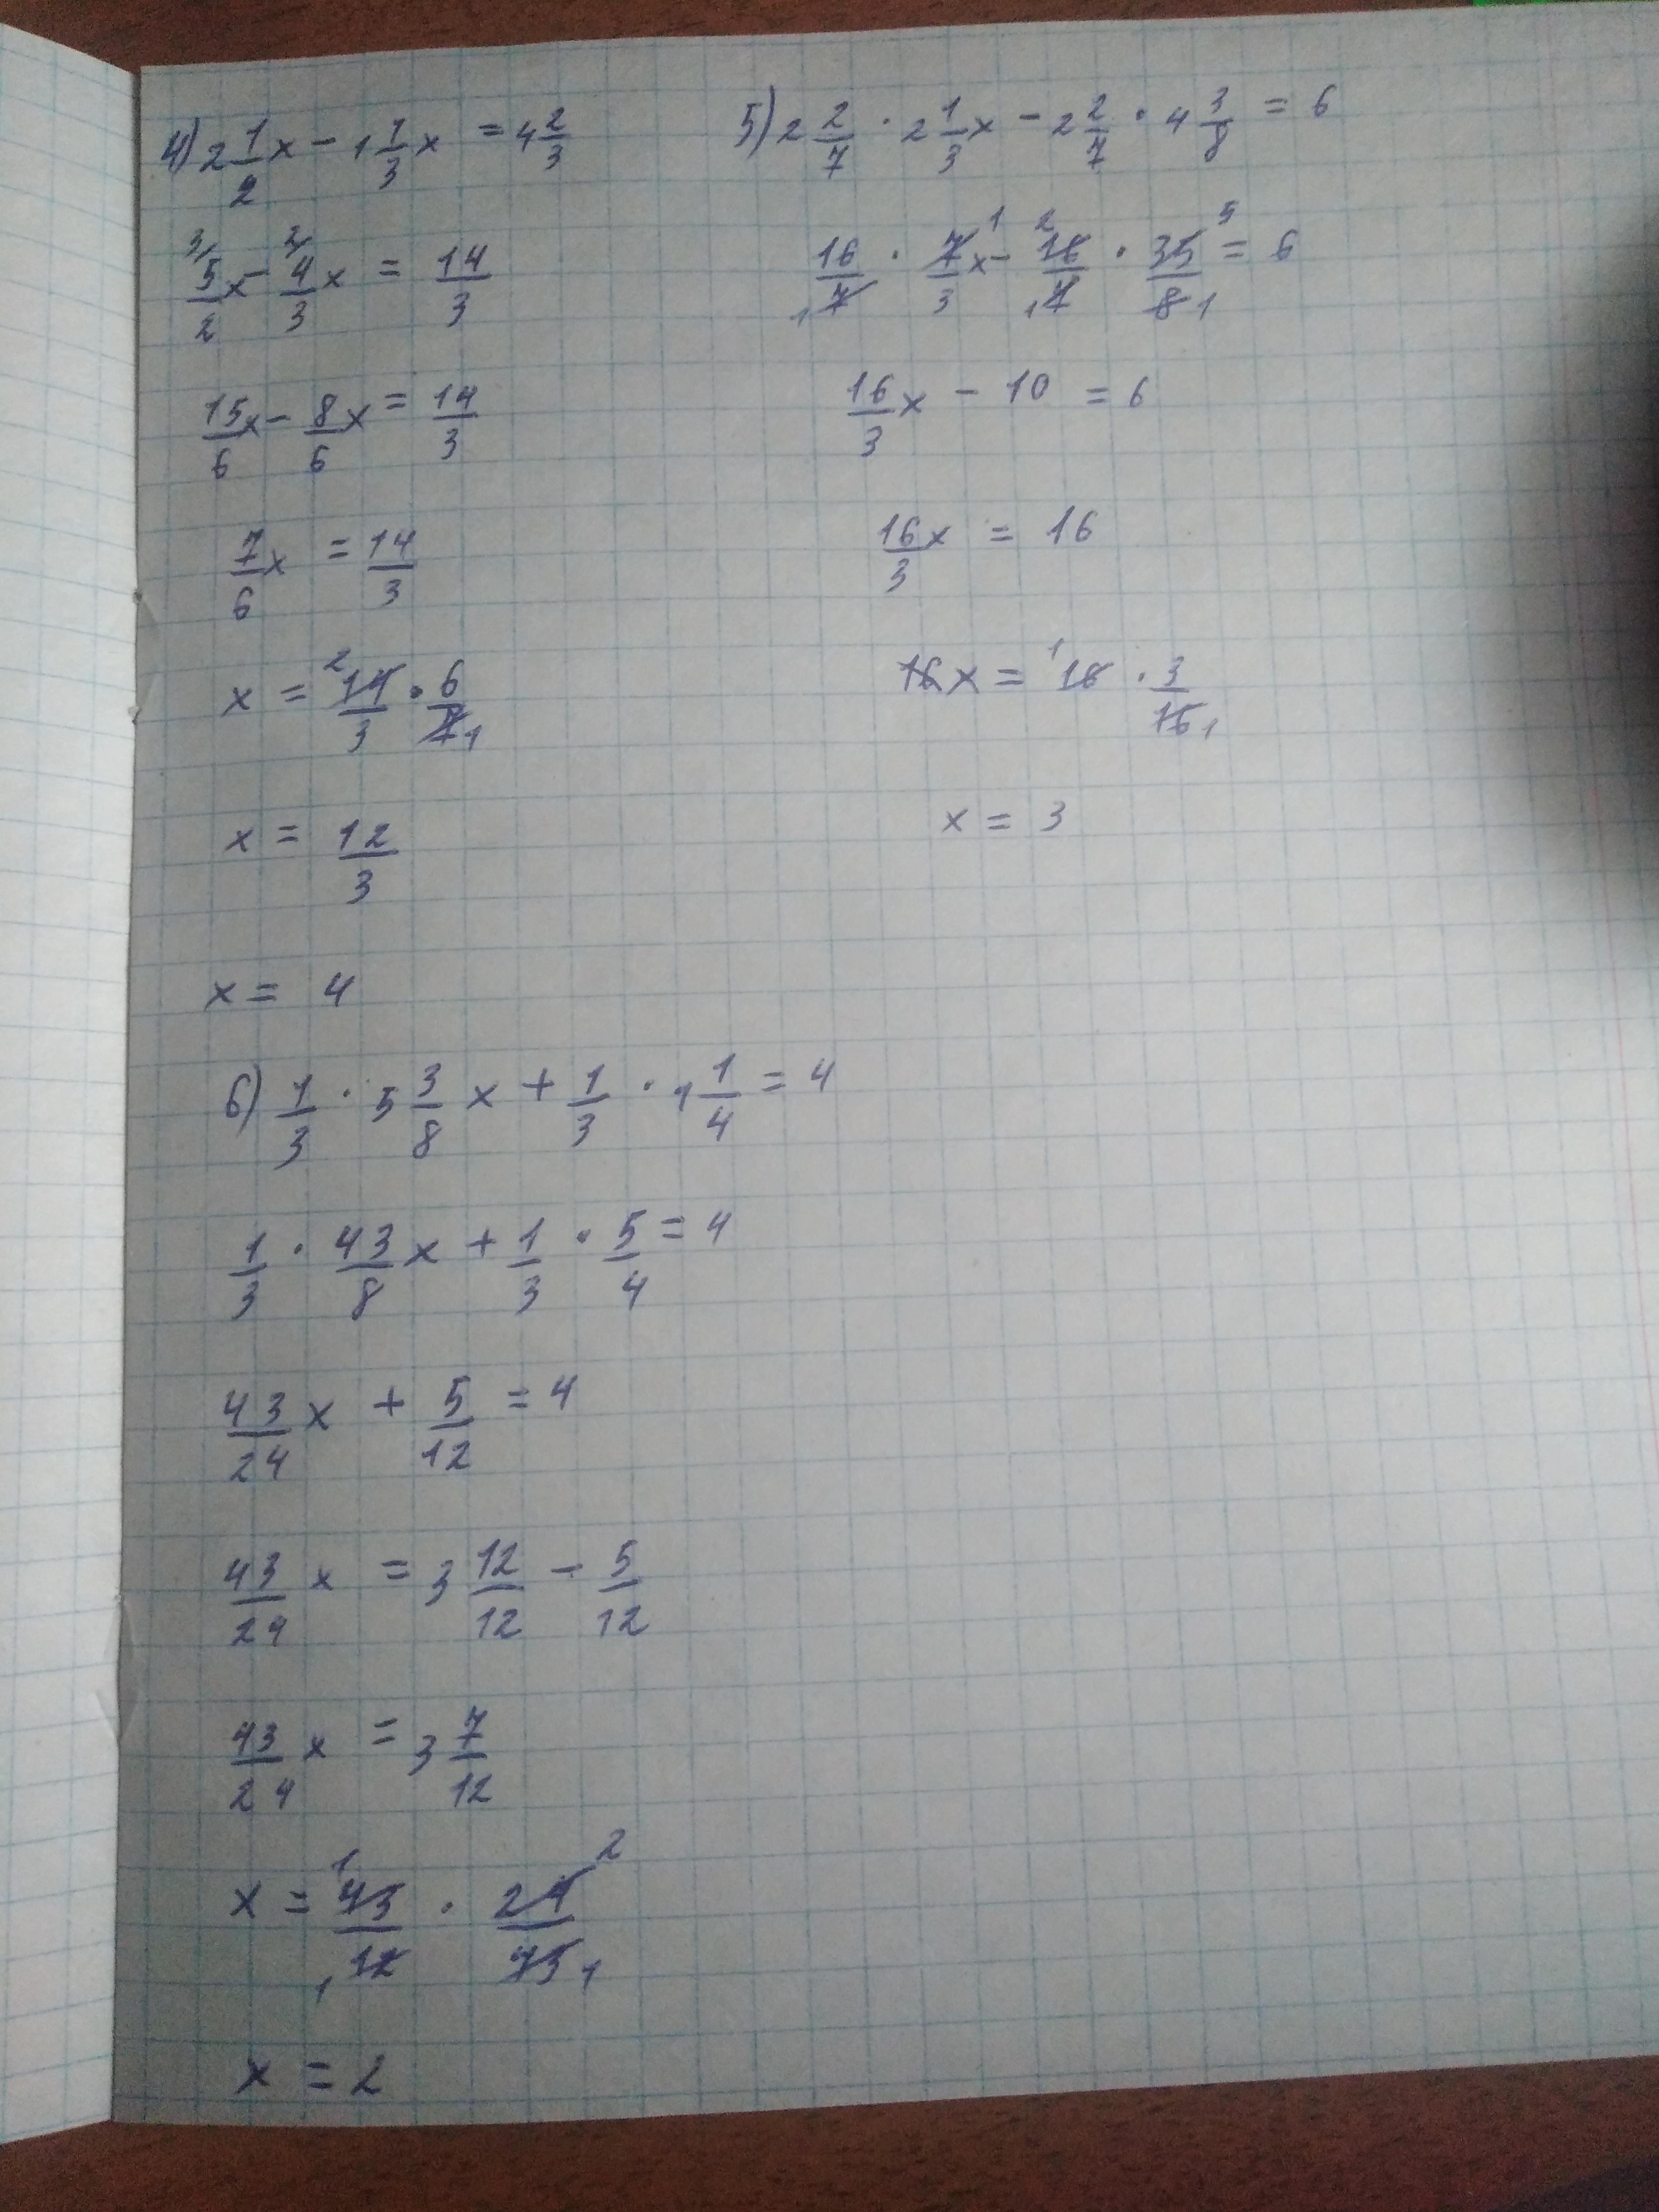 4) 2 1/2 x - 1 1/3 x = 4 2/3
3/ 5/2 x - 2/ 4/3 x = 14/3
15/6 x - 8/6 x = 14/3
7/6 x = 14/3
x = 2 14/3 · 6/7 1
x = 12/3
x = 4
5) 2 2/7 · 2 1/3 x - 2 2/7 · 4 3/8 = 6
16/7 1 · 7/3 1 x - 2 16/7 1 · 35/8 5 1 = 6
16/3 x - 10 = 6
16/3 x = 16
16x = 1 16 · 3/16 1
x = 3
6) 1/3 · 5 3/8 x + 1/3 · 1 1/4 = 4
1/3 · 43/8 x + 1/3 · 5/4 = 4
43/24 x + 5/12 = 4
43/24 x = 3 12/12 - 5/12
43/24 x = 3 7/12
x = 1 43/12 1 · 24/43 2 1
x = 2